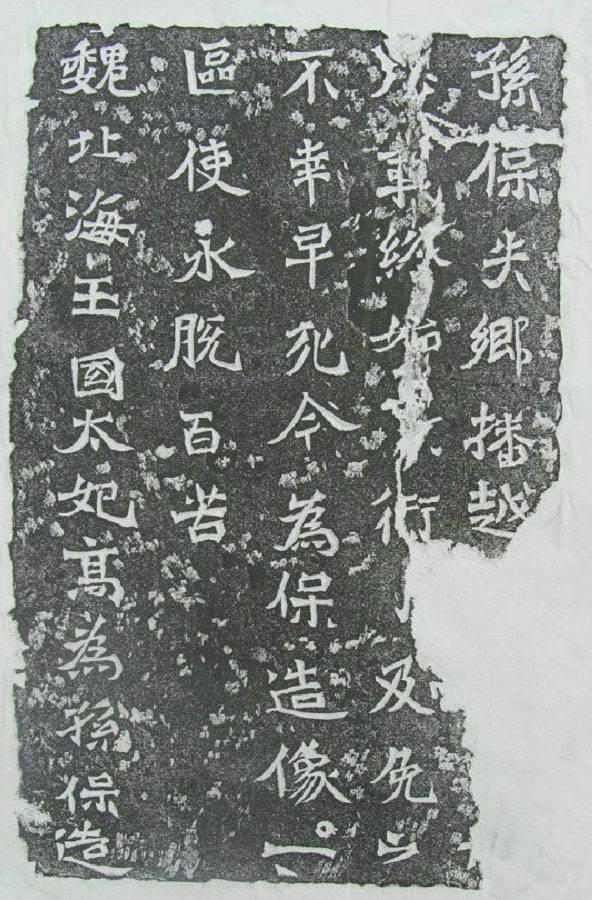 孫保失鄉播越
事緣始衍及免
不幸早死今為保造像一
區使永脫百苦
魏北海王國太妃高為孫保造